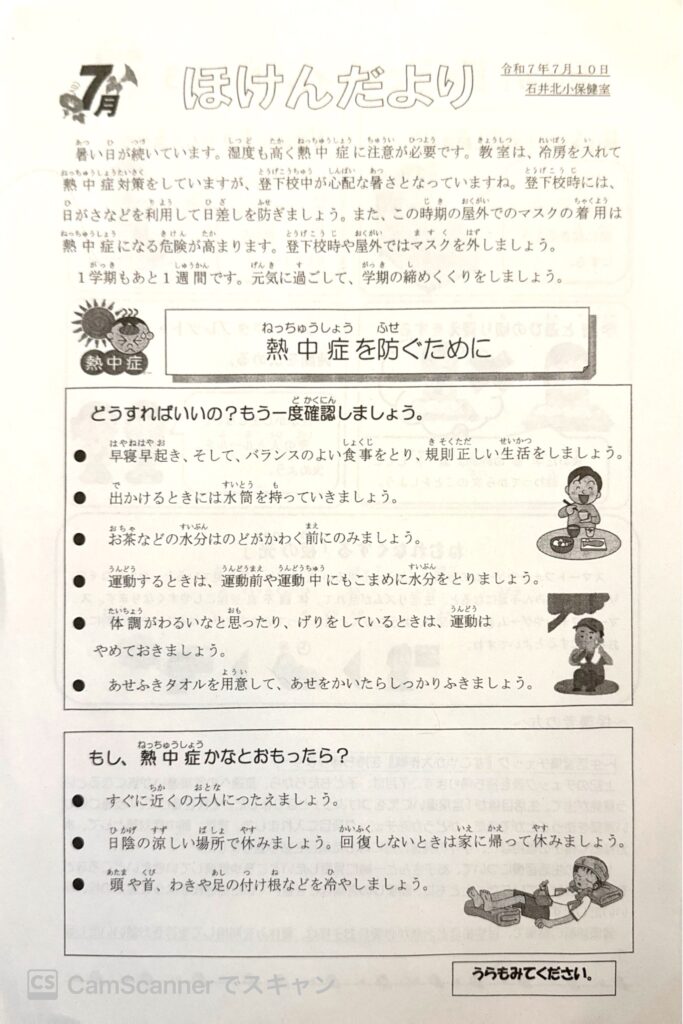 7月
ほけんだより
令和7年7月10日
石井北小保健室
暑い日が続いています。湿度も高く熱中症に注意が必要です。教室は、冷房を入れて
熱中症対策をしていますが、登下校中が心配な暑さとなっていますね。登下校時には、
日がさなどを利用して日差しを防ぎましょう。また、この時期の屋外でのマスクの着用は
熱中症になる危険が高まります。登下校時や屋外ではマスクを外しましょう。
1学期もあと1週間です。元気に過ごして、学期の締めくくりをしましょう。
熱中症
熱中症を防ぐために
どうすればいいの?もう一度確認しましょう。
● 早寝早起き、そして、バランスのよい食事をとり、規則正しい生活をしましょう。
● 出かけるときには水筒を持っていきましょう。
● お茶などの水分はのどがかわく前にのみましょう。
● 運動するときは、運動前や運動中にもこまめに水分をとりましょう。
● 体調がわるいなと思ったり、げりをしているときは、運動は
やめておきましょう。
● あせふきタオルを用意して、あせをかいたらしっかりふきましょう。
もし、熱中症かなとおもったら?
● すぐに近くの大人につたえましょう。
● 日陰の涼しい場所で休みましょう。回復しないときは家に帰って休みましょう。
● 頭や首、わきや足の付け根などを冷やしましょう。
うらもみてください。
CS CamScannerでスキャン